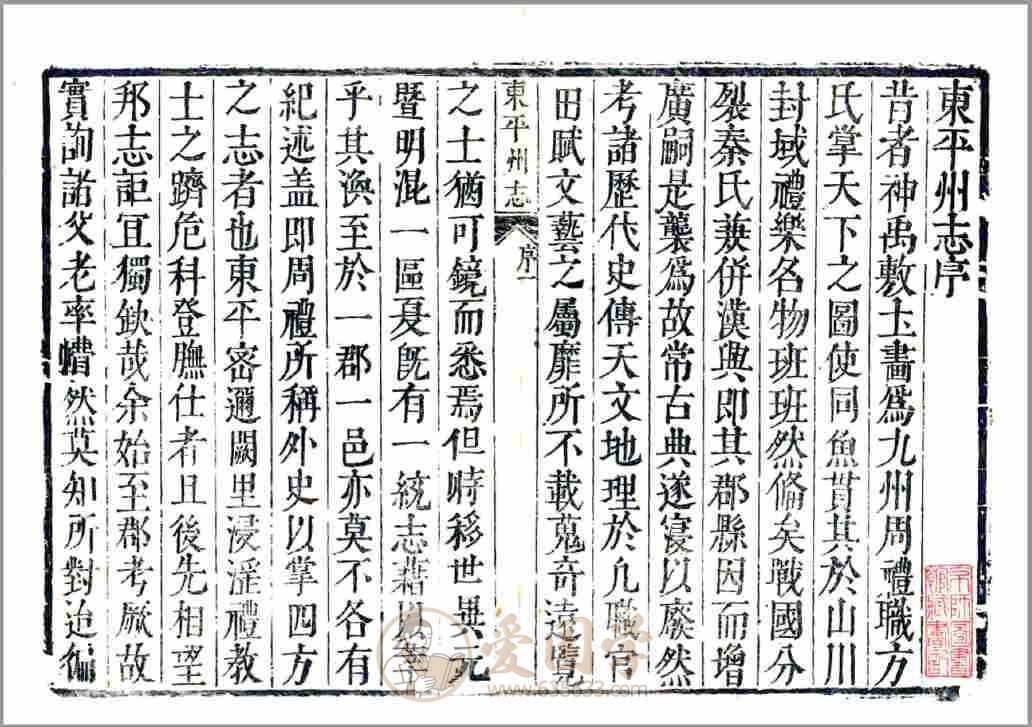 東平州志序
昔者神禹敷土畫爲九州周禮職方
氏掌天下之圖使同魚貫其於山川
封域禮樂名物班班然偹矣戰國分
裂秦氏兼併漢興即其郡縣因而增
廣嗣是襲爲故常古典遂寖以廢然
考諸歷代史傳天文地理於凡職官
田賦文藝之屬靡所不載蒐奇遠覽
東平州志 序一
之士猶可鏡而悉焉但時移世異元
曁明混一區夏旣有一統志藉以
乎其渙至於一郡一邑亦莫不各有
紀述盖即周禮所稱外史以掌四方
之志者也東平密邇闕里浸滛禮教
士之躋危科登膴仕者且後先相望
邦志詎冝獨欿哉余始至郡考厥故
實詢諸父老率懵然莫知所對迨徧
爱国学
www.635833.com